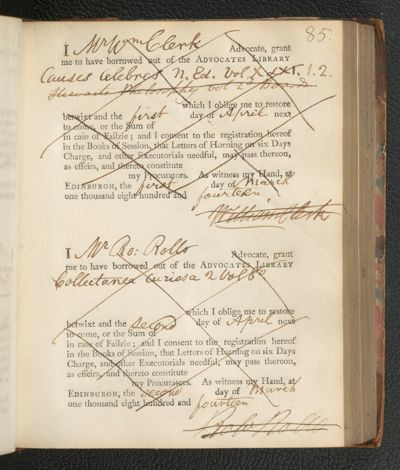 85.
I Mr Wm Clerk Advocate, grant
me to have borrowed out of the ADVOCATES LIBRARY
Causes Celebres N. Ed. Vol 1.2.
Stewarts Philosophy vol 2d boards
which I oblige me to restore
betwixt and the first day of April next
to come, or the Sum of
in case of Failzie; and I consent to the registration hereof
in the Books of Session, that Letters of Horning on six Days
Charge, and other Executorials needful, may pass thereon,
as effeirs, and thereto constitute
my Procurators. As witness my Hand, at
EDINBURGH, the first day of March
one thousand eight hundred and fourteen
William Clerk
I Mr Ro: Rollo Advocate, grant
me to have borrowed out of the ADVOCATES LIBRARY
Collectanea Curiosa 2 vols 8o
which I oblige me to restore
betwixt and the second day of April next
to come, or the Sum of
in case of Failzie; and I consent to the registration hereof
in the Books of Session, that Letters of Horning on six Days
Charge, and other Executorials needful, may pass thereon,
as effeirs, and thereto constitute
my Procurators. As witness my Hand, at
EDINBURGH, the second day of March
one thousand eight hundred and fourteen
Robt Rollo